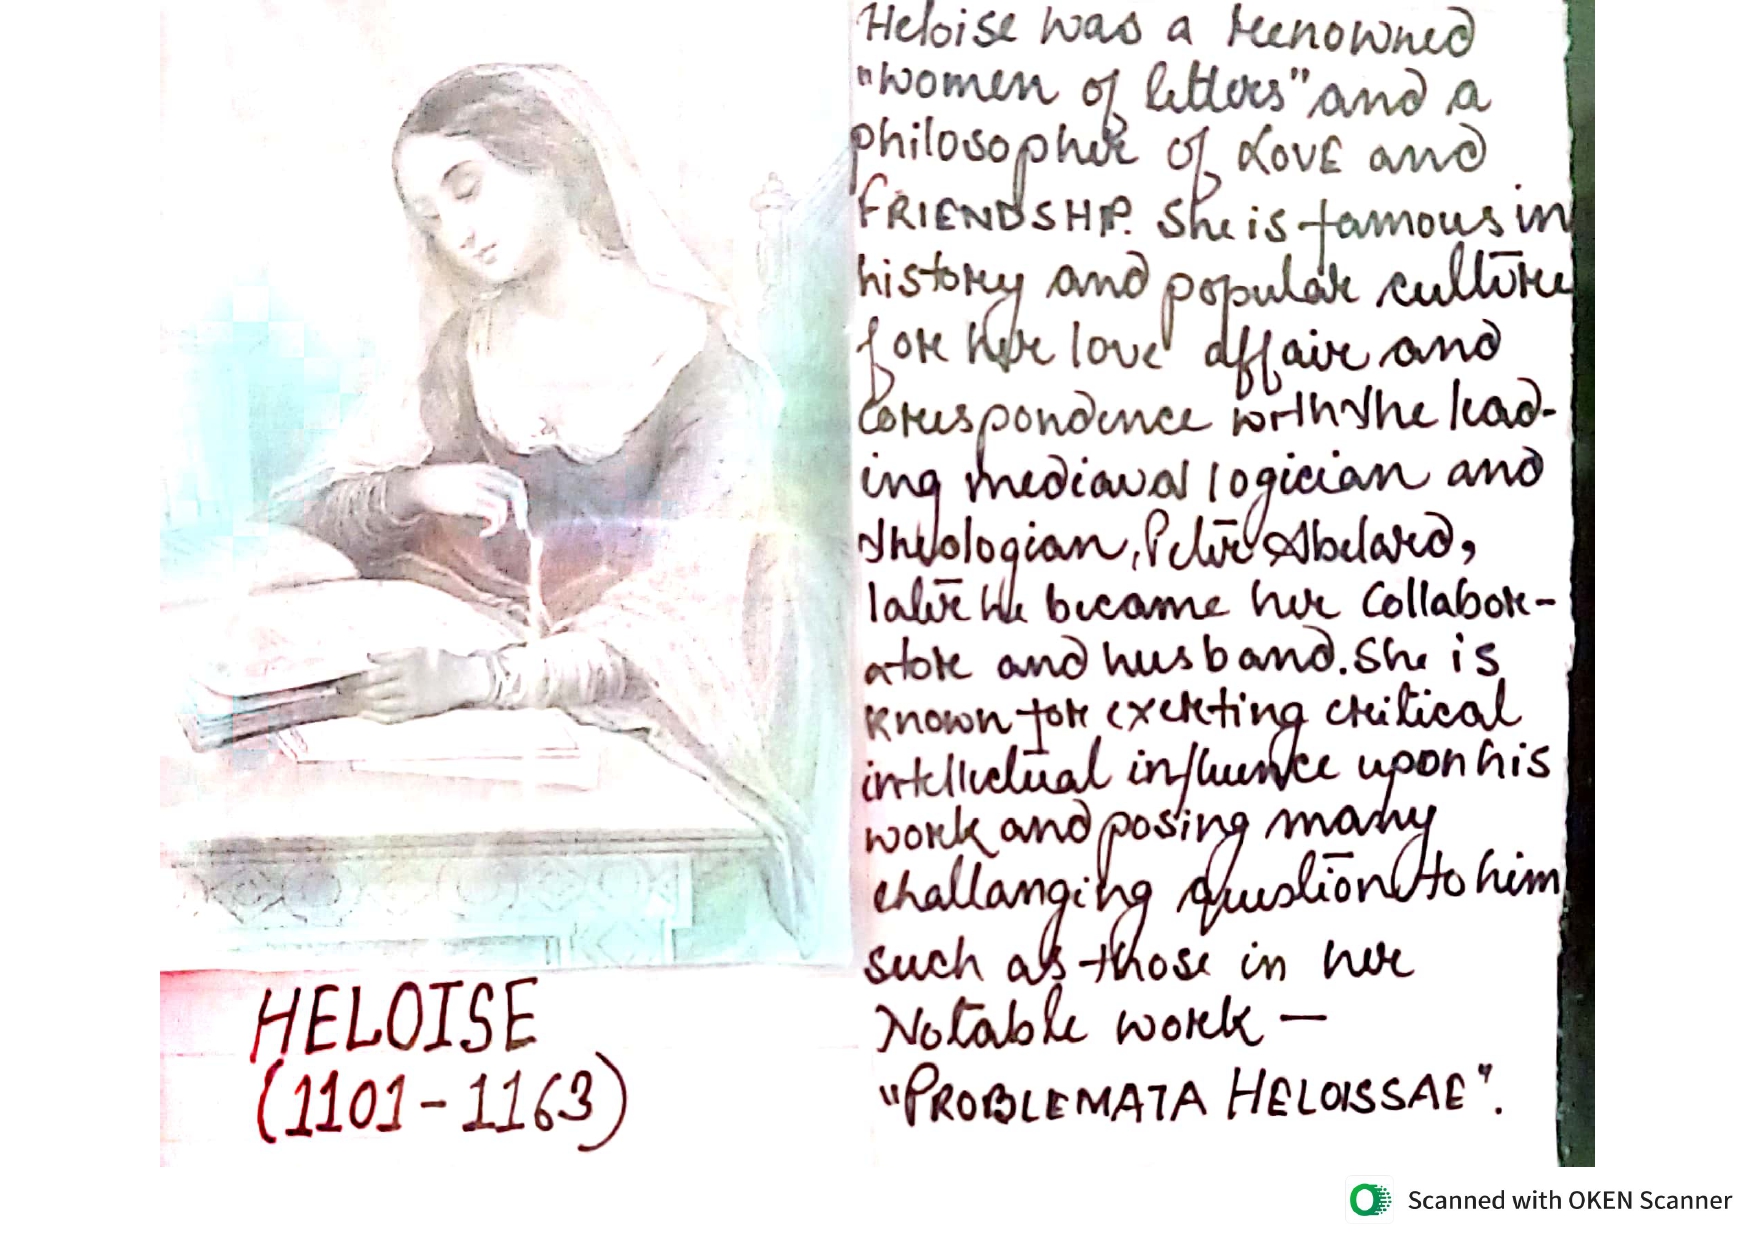 Heloise was a renowned
"women of letters" and a
philosopher of LOVE and
FRIENDSHIP. She is famous in
history and popular culture
for her love affair and
correspondence with the lead-
ing mediaval logician and
theologian, Peter Abelard,
later he became her collabor-
ator and husband. She is
known for exerting critical
intellectual influence upon his
work and posing many
challanging question to him
such as those in her
Notable work —
"PROBLEMATA HELOISSAE".
HELOISE
(1101-1163)
Scanned with OKEN Scanner